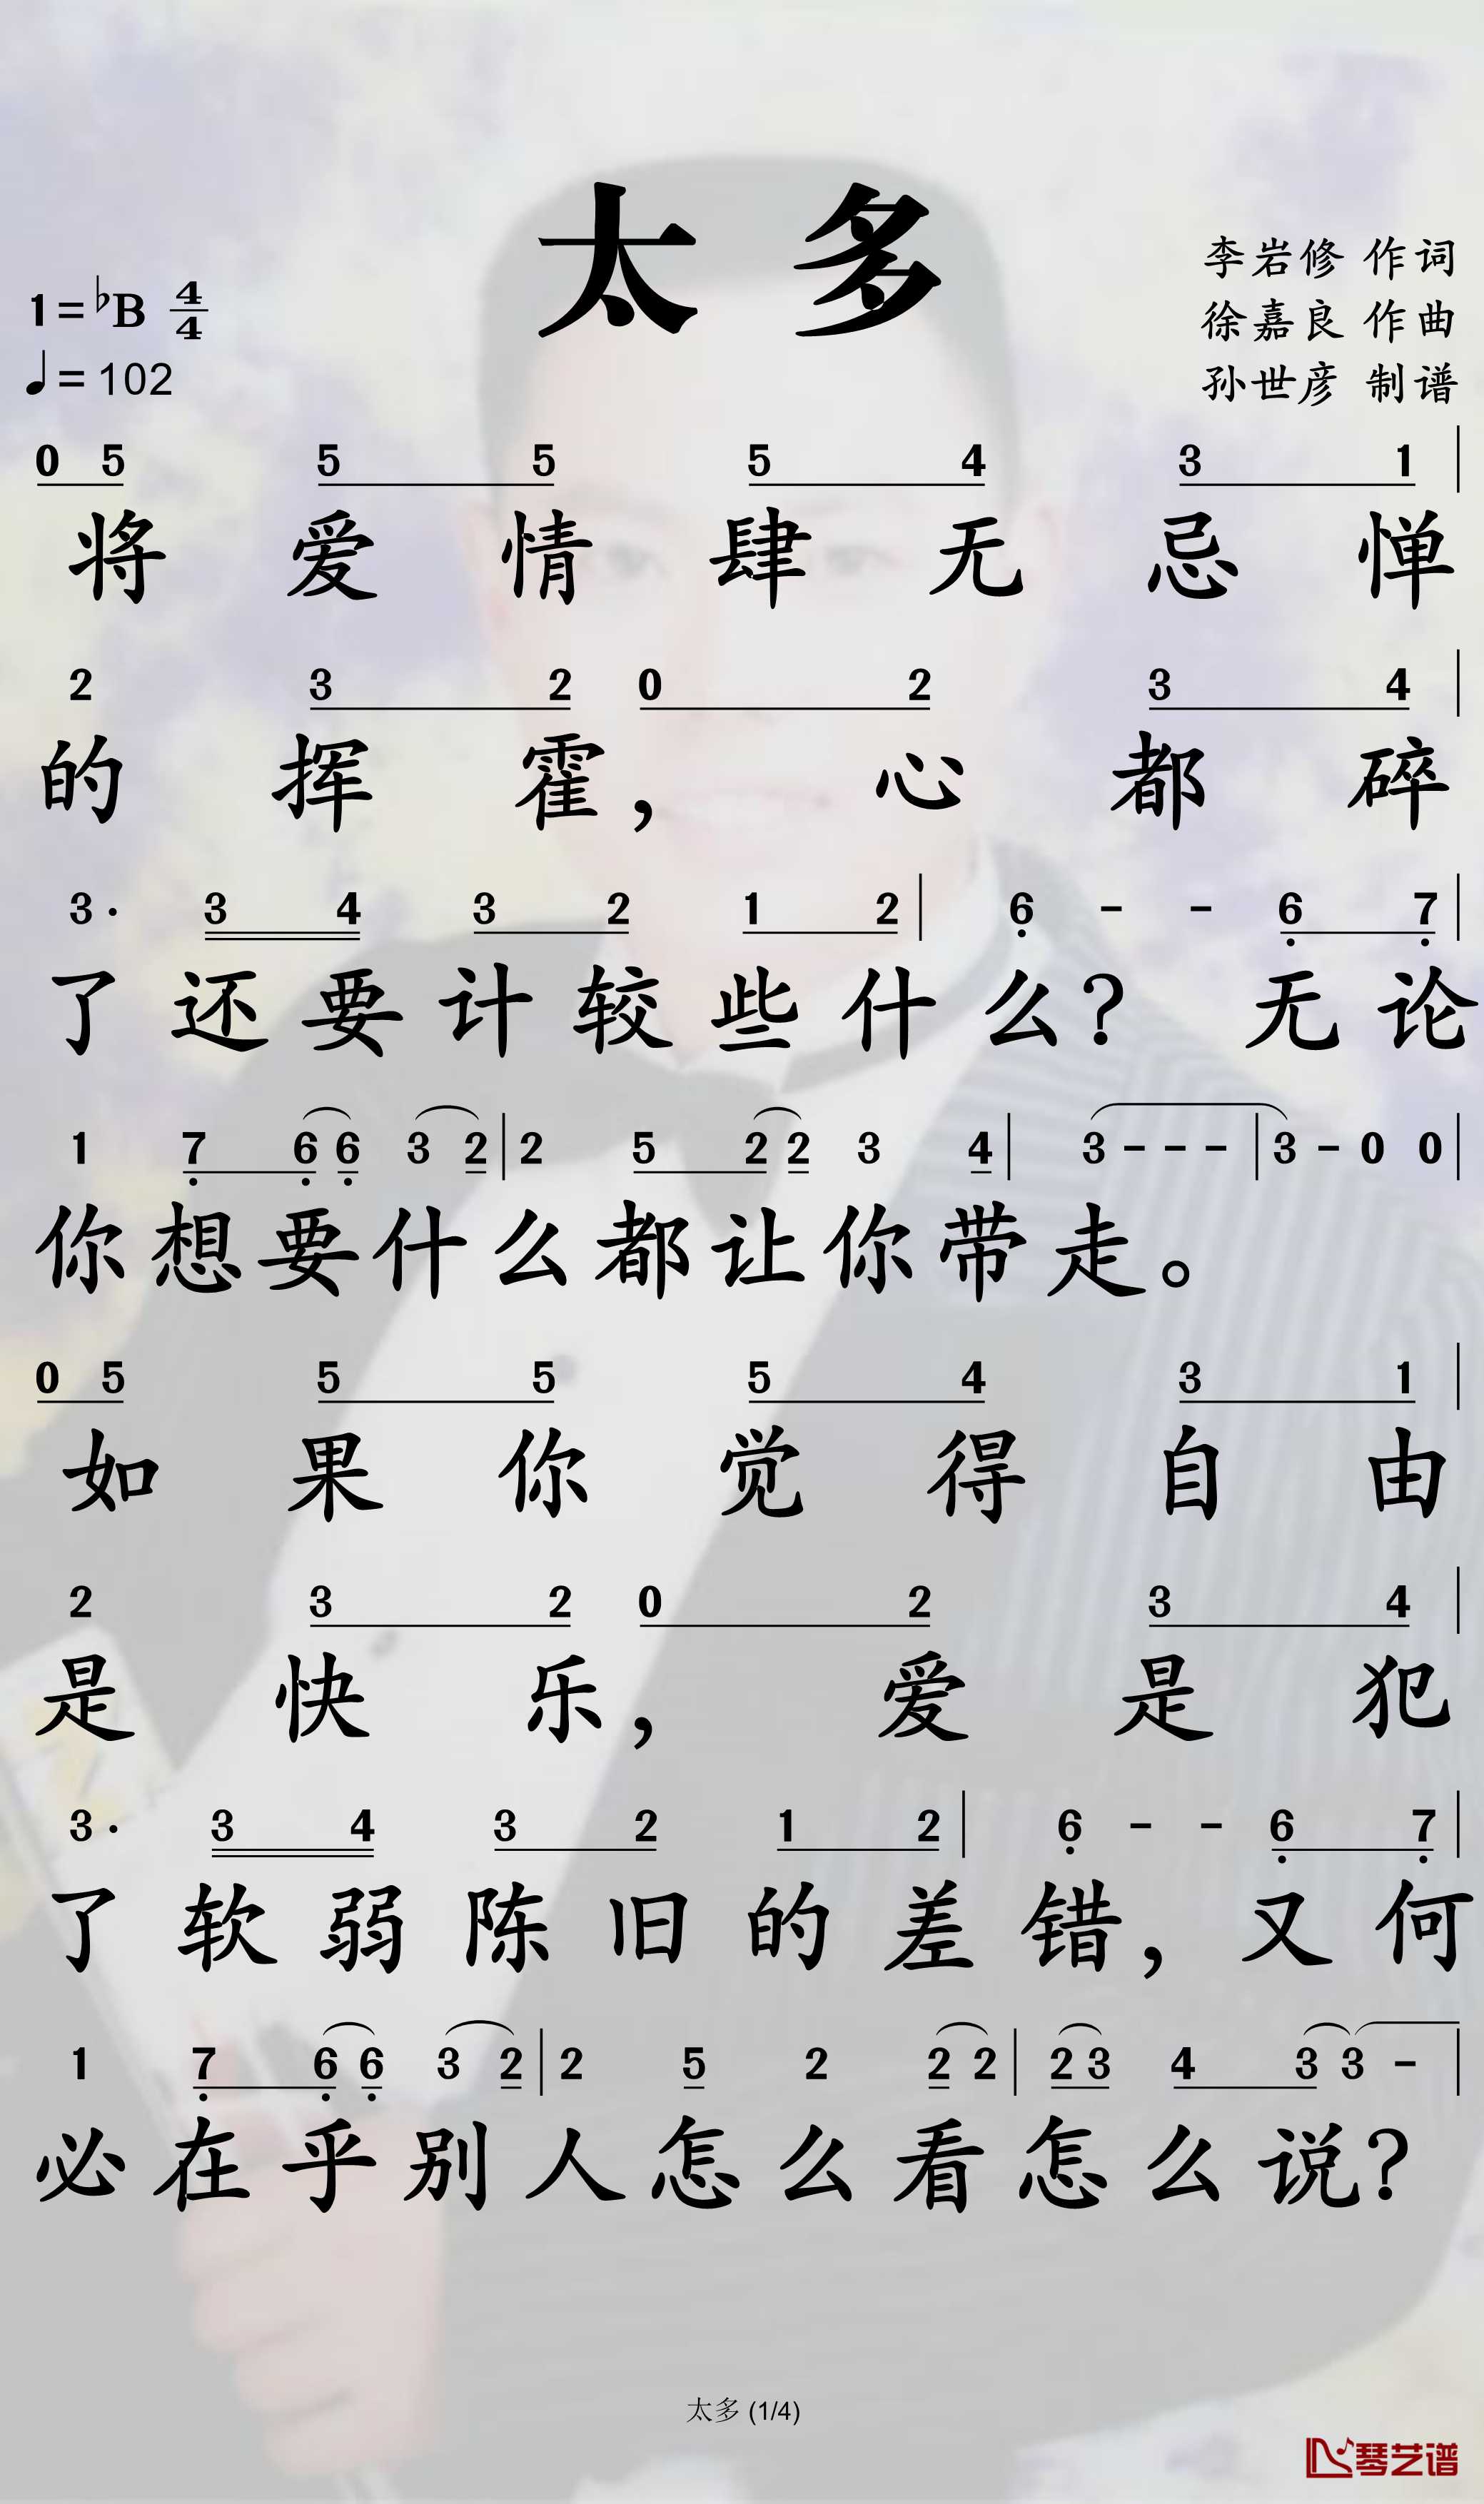 太多
李岩修 作词
1=♭B 4/4
徐嘉良 作曲
♩=102
孙世彦 制谱
0 5 5 5 5 4 3 1 |
将爱情肆无忌惮
2 3 2 0 2 3 4 |
的挥霍，心都碎
3· 3 4 3 2 1 2 | 6̣ - - 6̣ 7̣ |
了还要计较些什么？无论
1 7̣ 6̣ 6̣ 3 2 | 2 5 2 2 3 4 | 3 - - - | 3 - 0 0 |
你想要什么都让你带走。
0 5 5 5 5 4 3 1 |
如果你觉得自由
2 3 2 0 2 3 4 |
是快乐，爱是犯
3· 3 4 3 2 1 2 | 6̣ - - 6̣ 7̣ |
了软弱陈旧的差错，又何
1 7̣ 6̣ 6̣ 3 2 | 2 5 2 2 2 | 2 3 4 3 3 - |
必在乎别人怎么看怎么说？
太多 (1/4)
琴艺谱